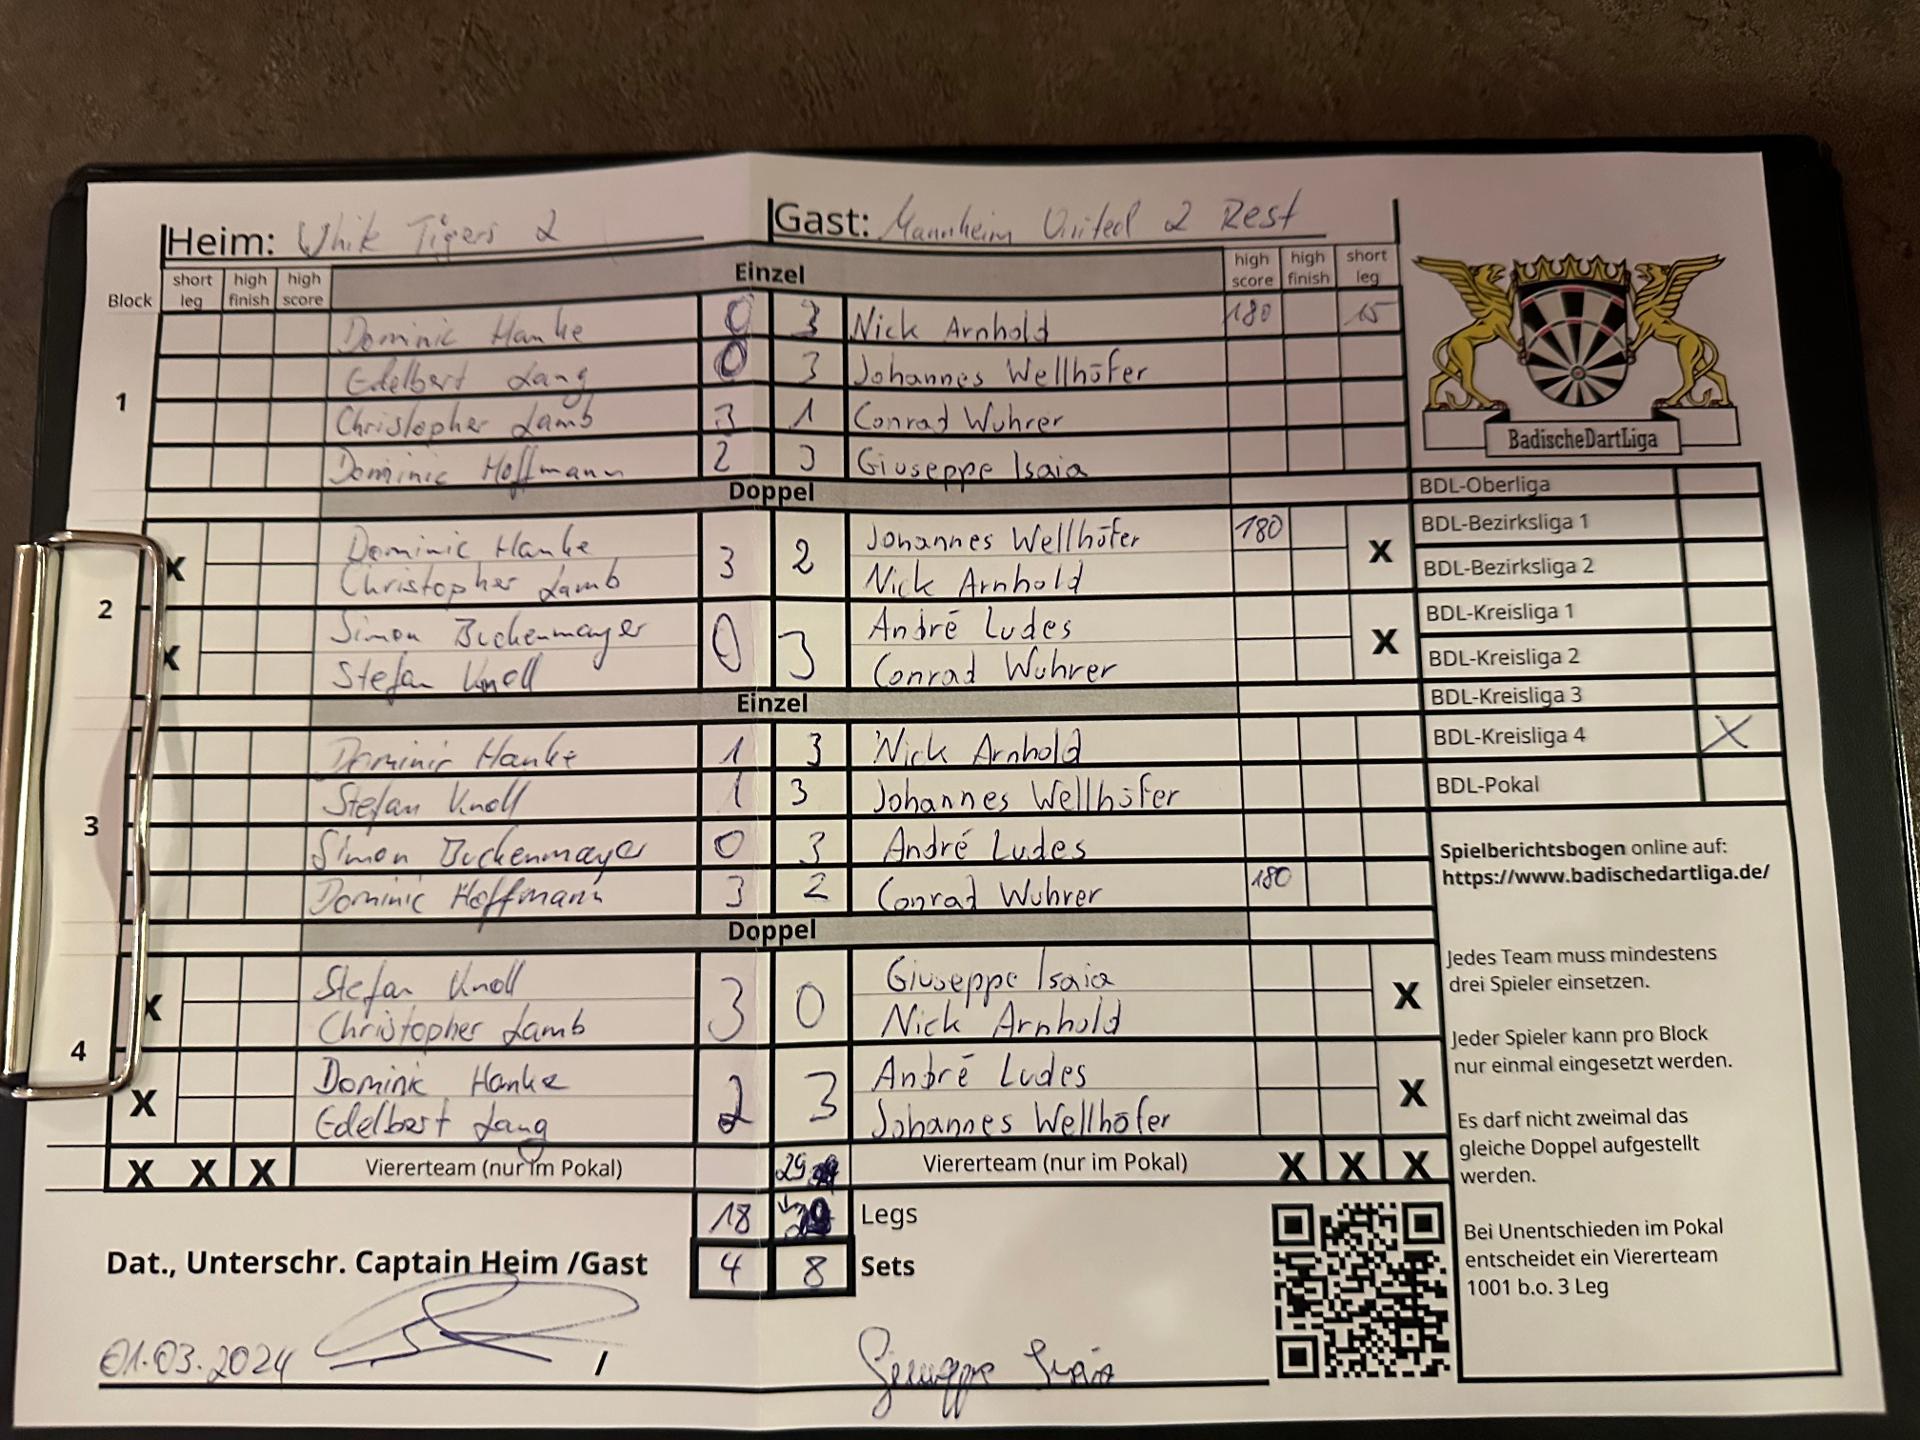 Heim: White Tigers 2 Gast: Mannheim United 2 Rest
Block short leg high finish high score Einzel high score high finish short leg
1
Dominic Hanke 0 3 Nick Arnhold 180 15
Edelbert Lang 0 3 Johannes Wellhöfer
Christopher Lamb 3 1 Conrad Wuhrer
Dominic Hoffmann 2 3 Giuseppe Isaia
Doppel
2
Dominic Hanke Johannes Wellhöfer 180
X 3 2 X
Christopher Lamb Nick Arnhold
Simon Buckenmayer André Ludes
X 0 3 X
Stefan Knoll Conrad Wuhrer
Einzel
3
Dominic Hanke 1 3 Nick Arnhold
Stefan Knoll 1 3 Johannes Wellhöfer
Simon Buckenmayer 0 3 André Ludes
Dominic Hoffmann 3 2 Conrad Wuhrer 180
Doppel
4
Stefan Knoll Giuseppe Isaia
X 3 0 X
Christopher Lamb Nick Arnhold
Dominic Hanke André Ludes
X 2 3 X
Edelbert Lang Johannes Wellhöfer
X X X Viererteam (nur im Pokal) 29 Viererteam (nur im Pokal) X X X
18 Legs
Dat., Unterschr. Captain Heim /Gast 4 8 Sets
01.03.2024 / Giuseppe Isaia
BadischeDartLiga
BDL-Oberliga
BDL-Bezirksliga 1
BDL-Bezirksliga 2
BDL-Kreisliga 1
BDL-Kreisliga 2
BDL-Kreisliga 3
BDL-Kreisliga 4 X
BDL-Pokal
Spielberichtsbogen online auf:
https://www.badischedartliga.de/
Jedes Team muss mindestens
drei Spieler einsetzen.
Jeder Spieler kann pro Block
nur einmal eingesetzt werden.
Es darf nicht zweimal das
gleiche Doppel aufgestellt
werden.
Bei Unentschieden im Pokal
entscheidet ein Viererteam
1001 b.o. 3 Leg